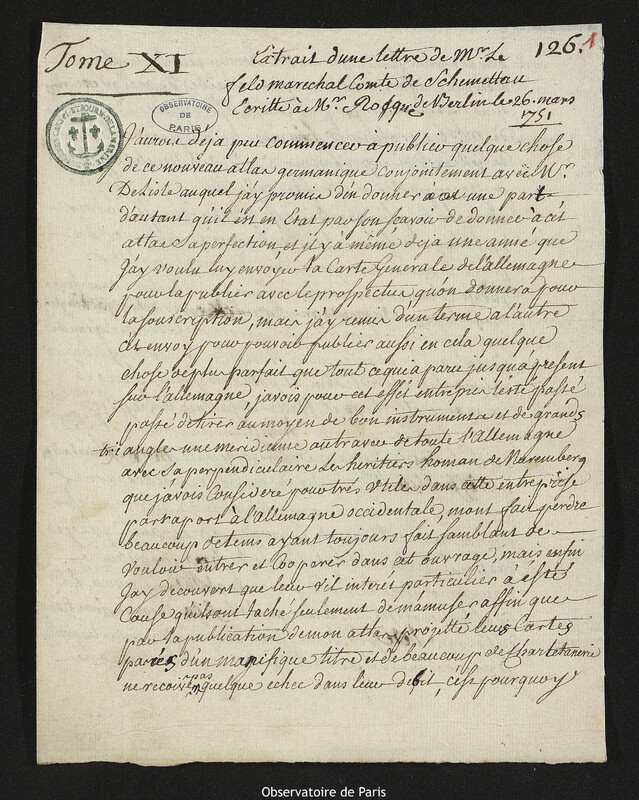 Tome XI
126.1
Extrait dune lettre de Mr. Le
feld marechal Comte de Schmettau
Ecritte à Mr. de Berlin le 26. mars
1751
OBSERVATOIRE
DE
PARIS
J'aurois deja peu commencer à publier quelque chose
de ce nouveau atlas germanique conjointement avec Mr.
Delisle auquel j'ay promis d'en donner à une part
d'autant qu'il est en Etat par son scavoir de donner à cét
atlas sa perfection et il y à même deja une anné que
J'ay voulu luy envoyer la Carte Generale de l'allemagne
pour la publier avec le prospectus quon donnera pour
la souscription, mais j'ay remis d'un terme à l'autre
cet envoy pour pouvoir publier aussi en cela quelque
chose de plus parfait que tout ce qui a paru jusqu'a présent
sur l'allemagne, javois pour cet effét entrepris l'esté passé
passé de tirer au moyen de bon instruments et de grands
triangle une meridienne au travers de toute l'Allemagne
avec sa perpendiculaire Les heritiers homan de Nuremberg
que j'avois Consideré pour trés Utile dans cette entreprise
par raport à l'allemagne occidentale, mont fait perdre
beaucoup de tems ayant toujours fait samblant de
vouloir entrer et Cooperer dans cet ouvrage, mais enfin
J'ay decouvert que leur vil interet particulier à esté
Cause quils ont taché seulement de m'amuser affin que
par la publication de mon atlas projetté leurs Cartes
parées d'un magnifique titre et de beaucoup de Charletanerie
ne recoivent pas quelque echec dans leur debit, c'est pourquoy
Observatoire de Paris